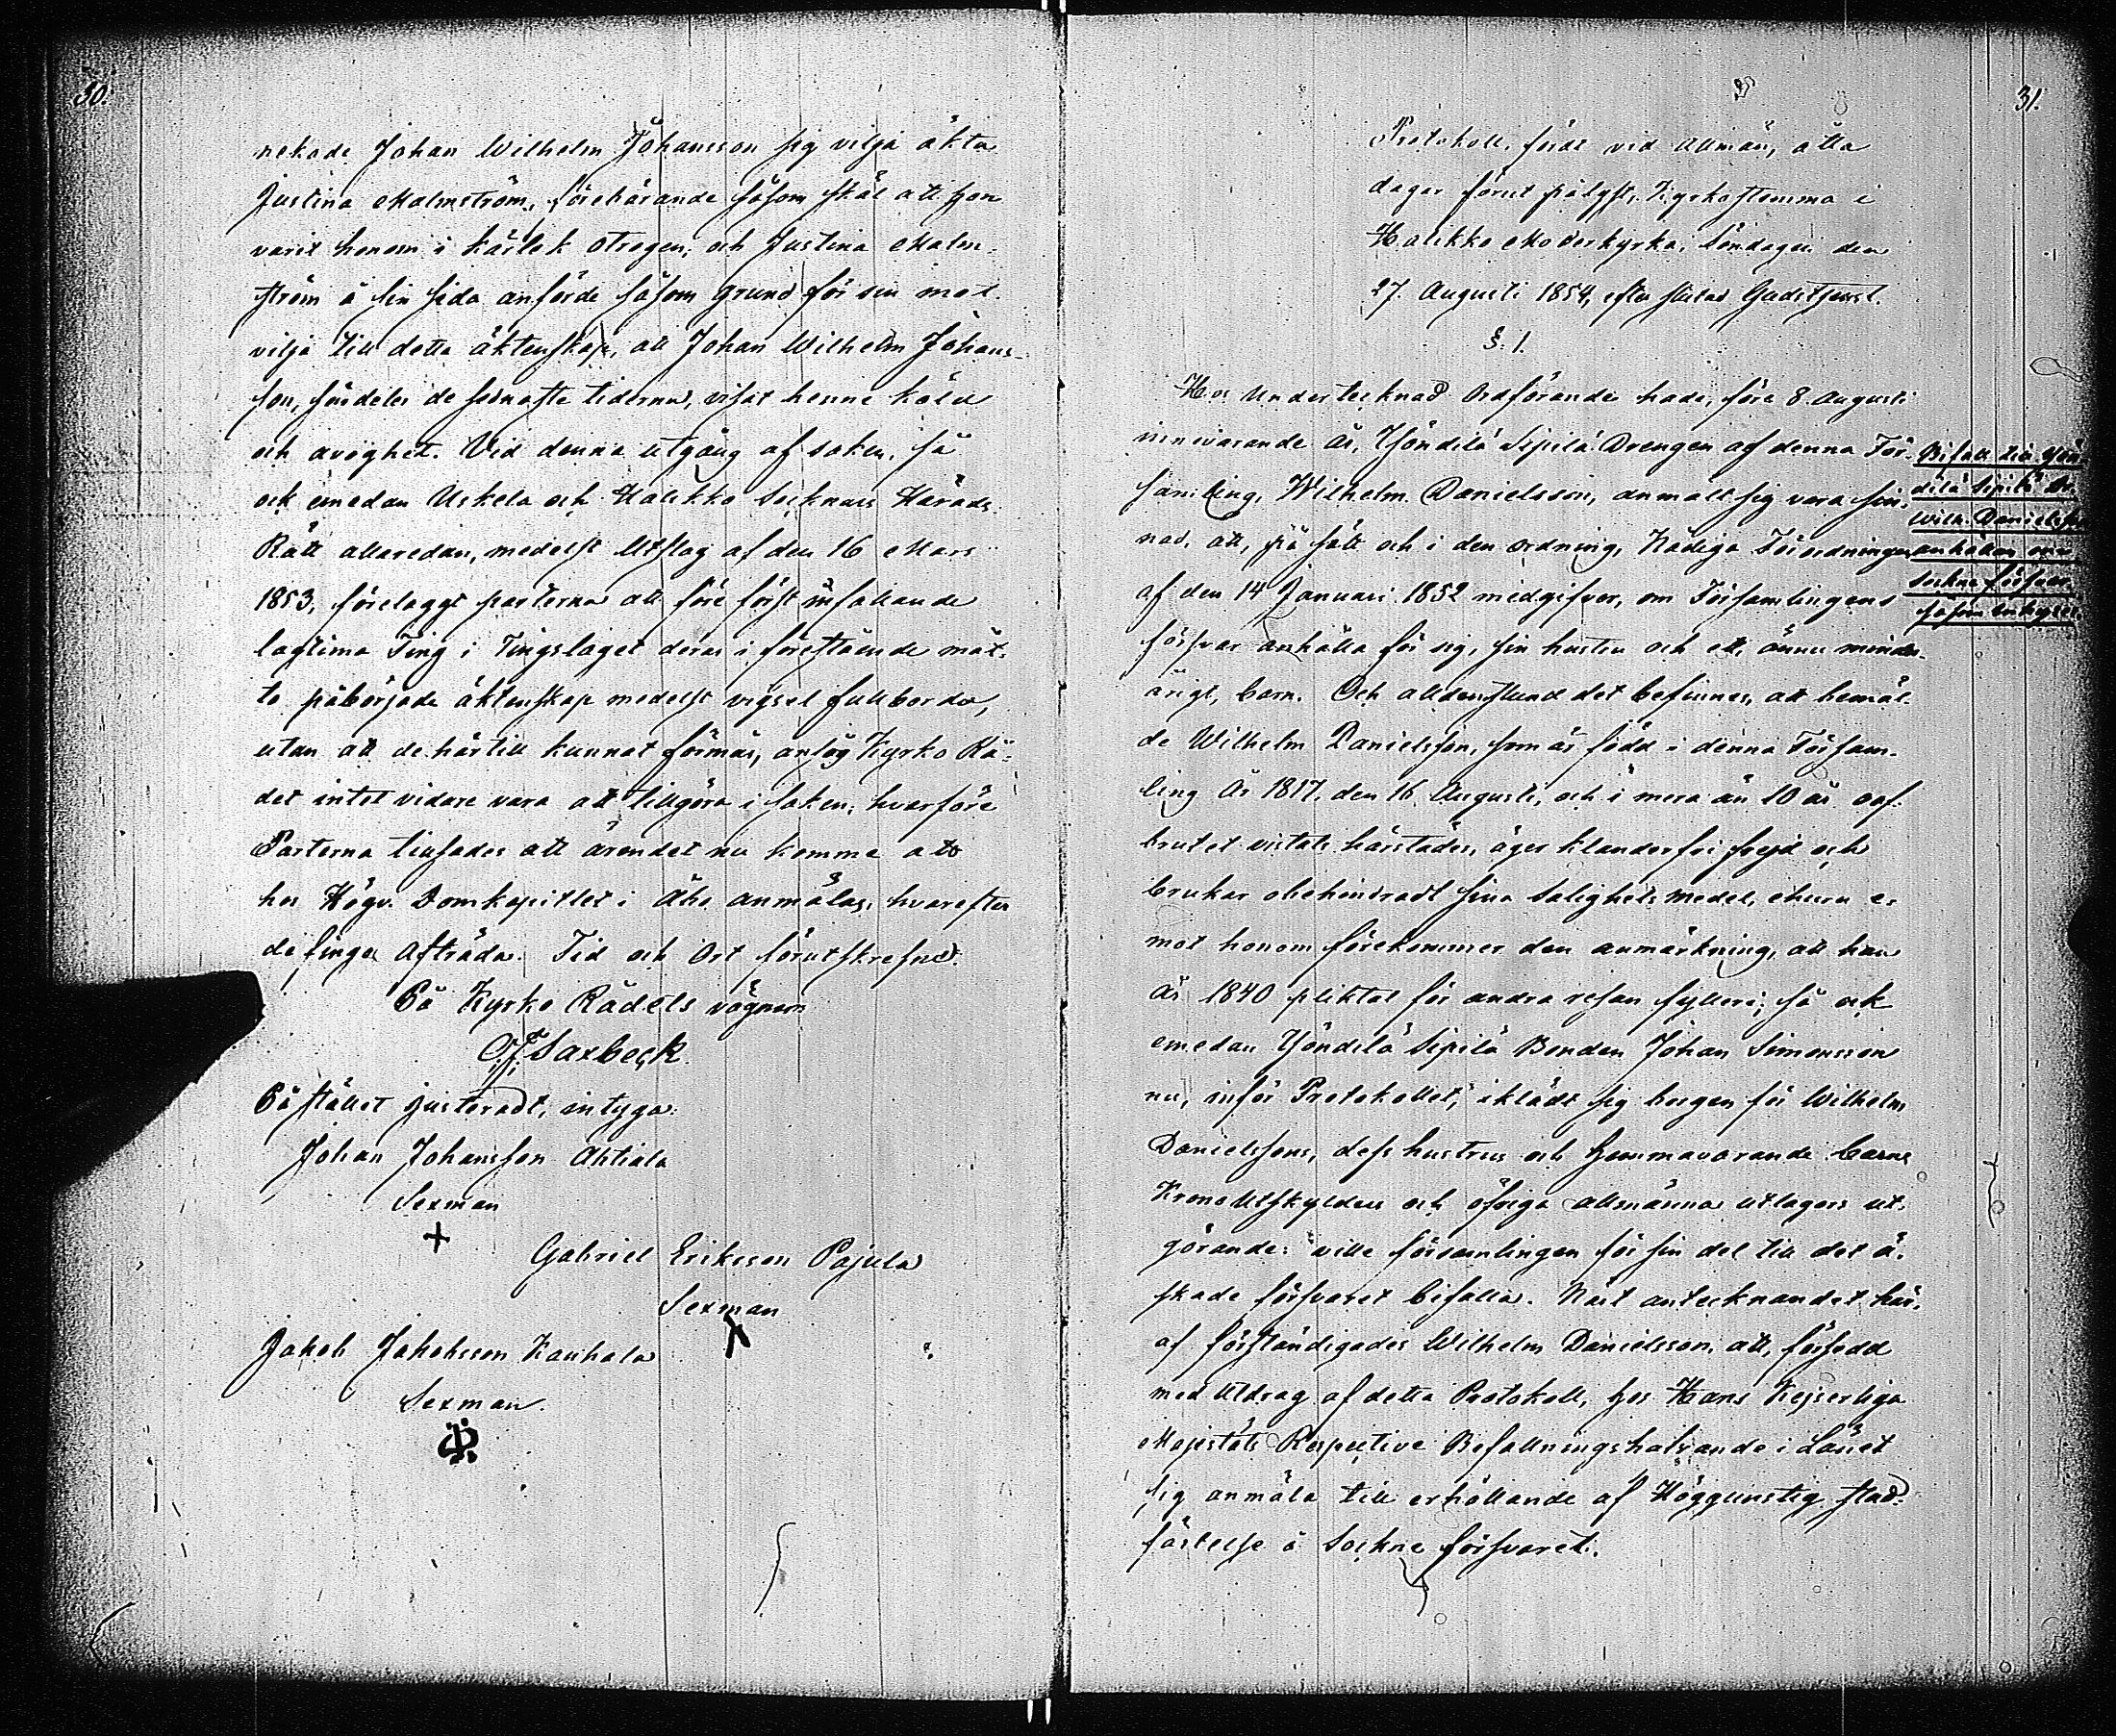 30.
nekade Johan Wilhelm Johansson sig vilja äkta
Justina Malmström, förebärande såsom skäl att hon
varit honom i kärlek otrogen; och Justina Malm-
ström å sin sida anförde såsom grund för sin mot-
vilja till detta äktenskap, att Johan Wilhelm Johans-
son, särdeles de sednaste tiderna, visat henne köld
och avoghet. Vid denna utgång af saken, så
ock emedan Uskela och Halikko Socknars Härads
Rätt allaredan, medelst Utslag af den 16 Mars
1853, förelaggt parterna att före först infallande
lagtima Ting i Tingslaget deras i föreskående måt-
to påbörjade äktenskap medelst vigsel fullborda,
utan att de härtill kunnat förmås, ansåg Kyrko Rå-
det intet vidare vara att tillgöra i saken; hvarföre
Parterna tillsades att ärendet nu komme att
hos Högv. Domkapitlet i Åbo anmälas, hvarefter
de finge afträda. Tid och Ort förutskrefne.
På Kyrko Rådets vägnar
F. Saxbeck.
På stället justeradt, intyga:
Johan Johansson Ahtiala
Sexman
+
Gabriel Eriksson Pajula
Sexman
Jakob Jakobsson Kaukola
Sexman.
31.
Protokoll, fördt vid allmän, åtta
dagar förut pålyst, Kyrkostemma i
Halikko Moderkyrka, Söndagen den
27. Augusti 1854, efter slutad Gudstjenst.
§. 1.
Hos Undertecknad Ordförande hade, före 8. Augusti
innevarande år, Yöndilä Sipilä Drengen af denna För-
samling, Wilhelm Danielsson, anmält sig vara sin-
nad, att, på sätt och i den ordning, Nådiga Förordningen
af den 14 Januari 1852 medgifver, om Församlingens
försvar anhålla för sig, sin hustru och ett, ännu minder-
årigt, barn. Och alldenstund det befinnes, att bemäl-
de Wilhelm Danielsson, som är född i denna Försam-
ling År 1817. den 16 Augusti, och i mera än 10 år oaf-
brutet vistats härstädes, äger klanderfri frejd och
brukar obehindradt sina Salighets medel, ehuru e-
mot honom förekommer den anmärkning, att han
År 1840 pliktat för andra resan fylleri; så ock
emedan Yöndilä Sipilä Bonden Johan Simonsson
nu, inför Protokollet, iklädt sig borgen för Wilhelm
Danielssons, dess hustrus och hemmavarande barns
Krono Utskylders och öfriga allmänna utlagors ut-
görande: ville församlingen för sin del till det ä-
skade försvaret bifalla. Näst antecknandet här-
af förständigades Wilhelm Danielsson, att, försedd
med Utdrag af detta Protokoll, hos Hans Kejserliga
Majestäts Respective Befallningshafvande i Länet
sig anmäla till erhållande af Höggunstig stad-
fästelse å Sockne försvaret.
Bifall till Yön-
dilä Sipilä Dr.
Wilh. Danielsson
anhållan om
Sockne försvar
såsom inhyses.